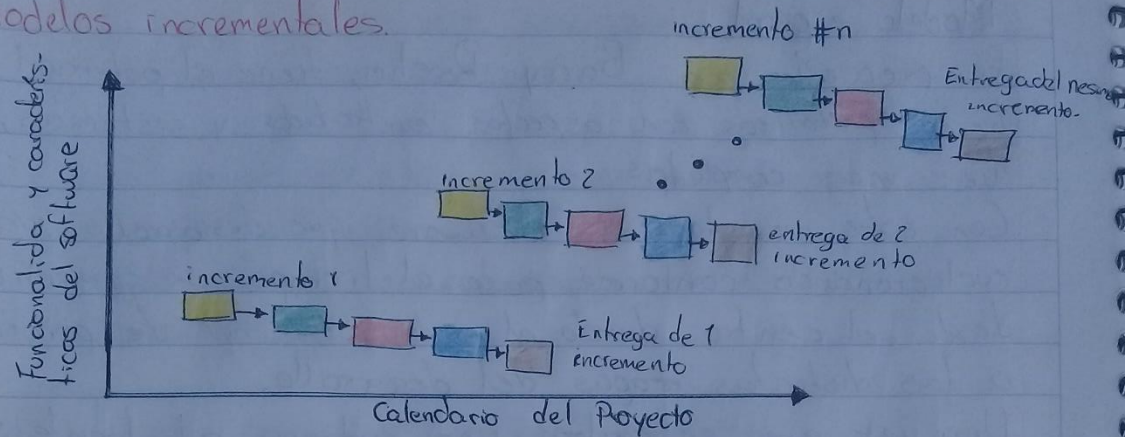 odelos incrementales.
incremento #n
Entrega del nesimo
incremento.
Funcionalida y caracterís-
ticas del software
incremento 2
entrega de 2
incremento
incremento 1
Entrega de 1
incremento
Calendario del Proyecto